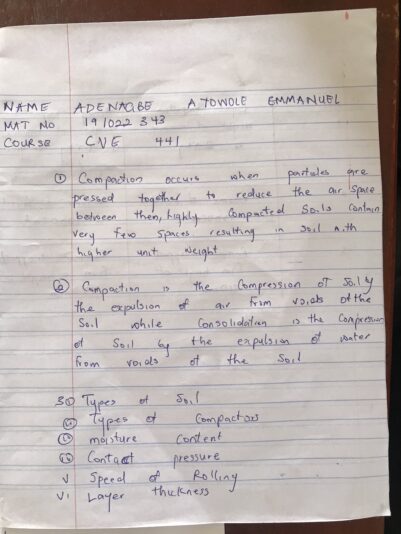 NAME ADENAGBE ATOWOLE EMMANUEL
MAT NO 191022343
COURSE CNE 441
① Compaction occurs when particles are
pressed together to reduce the air space
between then, highly compacted soils contain
very few spaces resulting in soil with
higher unit weight
② Compaction is the Compression of Soil by
the expulsion of air from voids of the
Soil while Consolidation is the Compression
of Soil by the expulsion of water
from voids of the Soil
3① Types of Soil
② Types of Compactors
③ moisture content
④ Contact pressure
V Speed of Rolling
Vi Layer thickness